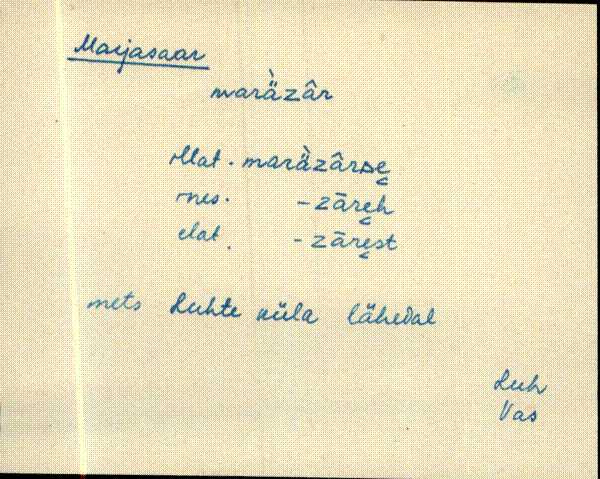 Marjasaar
marä̀zâr
illat. marä̀zârse̬
ines. -zāre̬h
elat. -zāre̬st
mets Luhte küla lähedal
Luh
Vas